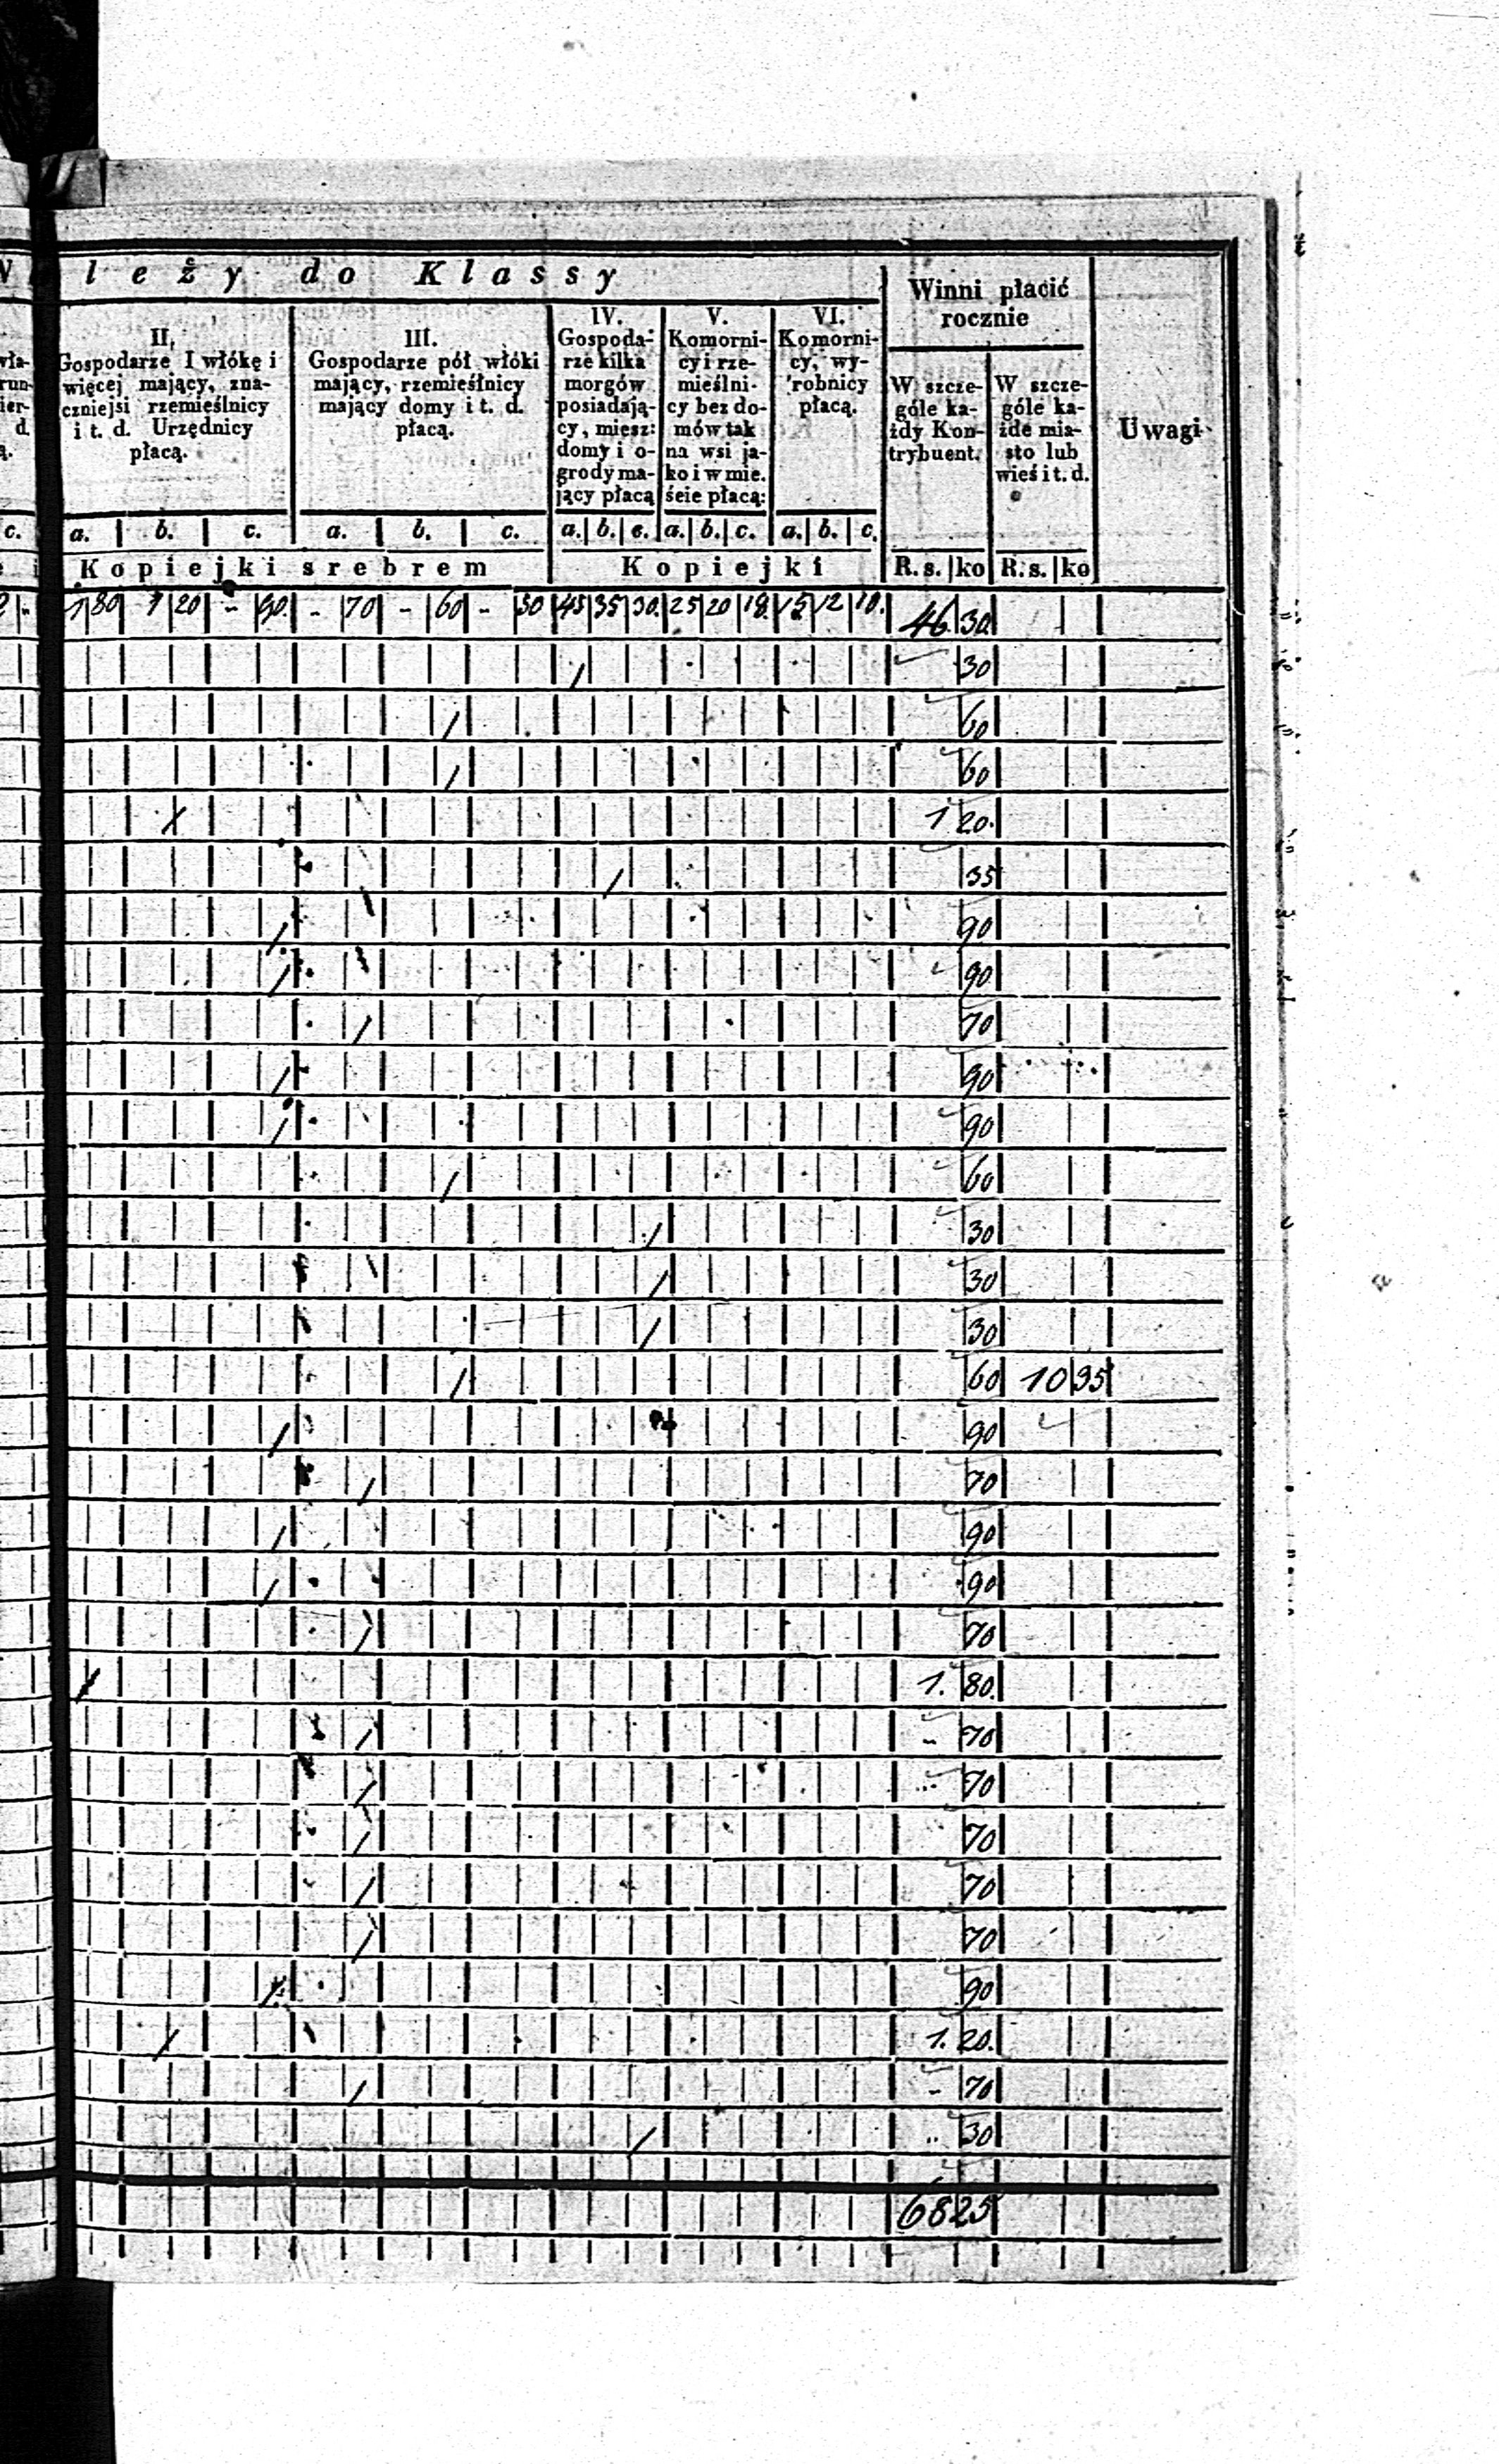 leży do Klassy
Winni płacić
rocznie
II.
Gospodarze I włókę i
więcej mający, zna-
czniejsi rzemieślnicy
i t. d. Urzędnicy
płacą.
III.
Gospodarze pół włóki
mający, rzemieślnicy
mający domy i t. d.
płacą.
IV.
Gospoda-
rze kilka
morgów
posiadają-
cy, miesz:
domy i o-
grody ma-
jący płacą
V.
Komorni-
cy i rze-
mieślni-
cy bez do-
mów tak
na wsi ja-
ko i w mie.
ście płacą:
VI.
Komorni-
cy, wy-
robnicy
płacą.
W szcze-
góle ka-
żdy Kon-
trybuent.
W szcze-
góle ka-
żde mia-
sto lub
wieś i t. d.
Uwagi
c. a. b. c. a. b. c. a. b. c. a. b. c. a. b. c.
Kopiejki srebrem Kopiejki R. s. ko R. s. ko
1 80 1 20 - 90 - 70 - 60 - 50 45 35 30 25 20 18 15 12 10 46 30
/ 30
/ 60
/ 60
/ 1 20
/ 35
/ 90
/ 90
/ 70
/ 90
/ 90
/ 60
/ 30
/ 30
/ 30
/ 60 10 95
/ 90
/ 70
/ 90
/ 90
/ 70
/ 1. 80
/ - 70
/ 70
/ 70
/ 70
/ 70
/ 90
/ 1. 20
/ - 70
/ 30
68 25